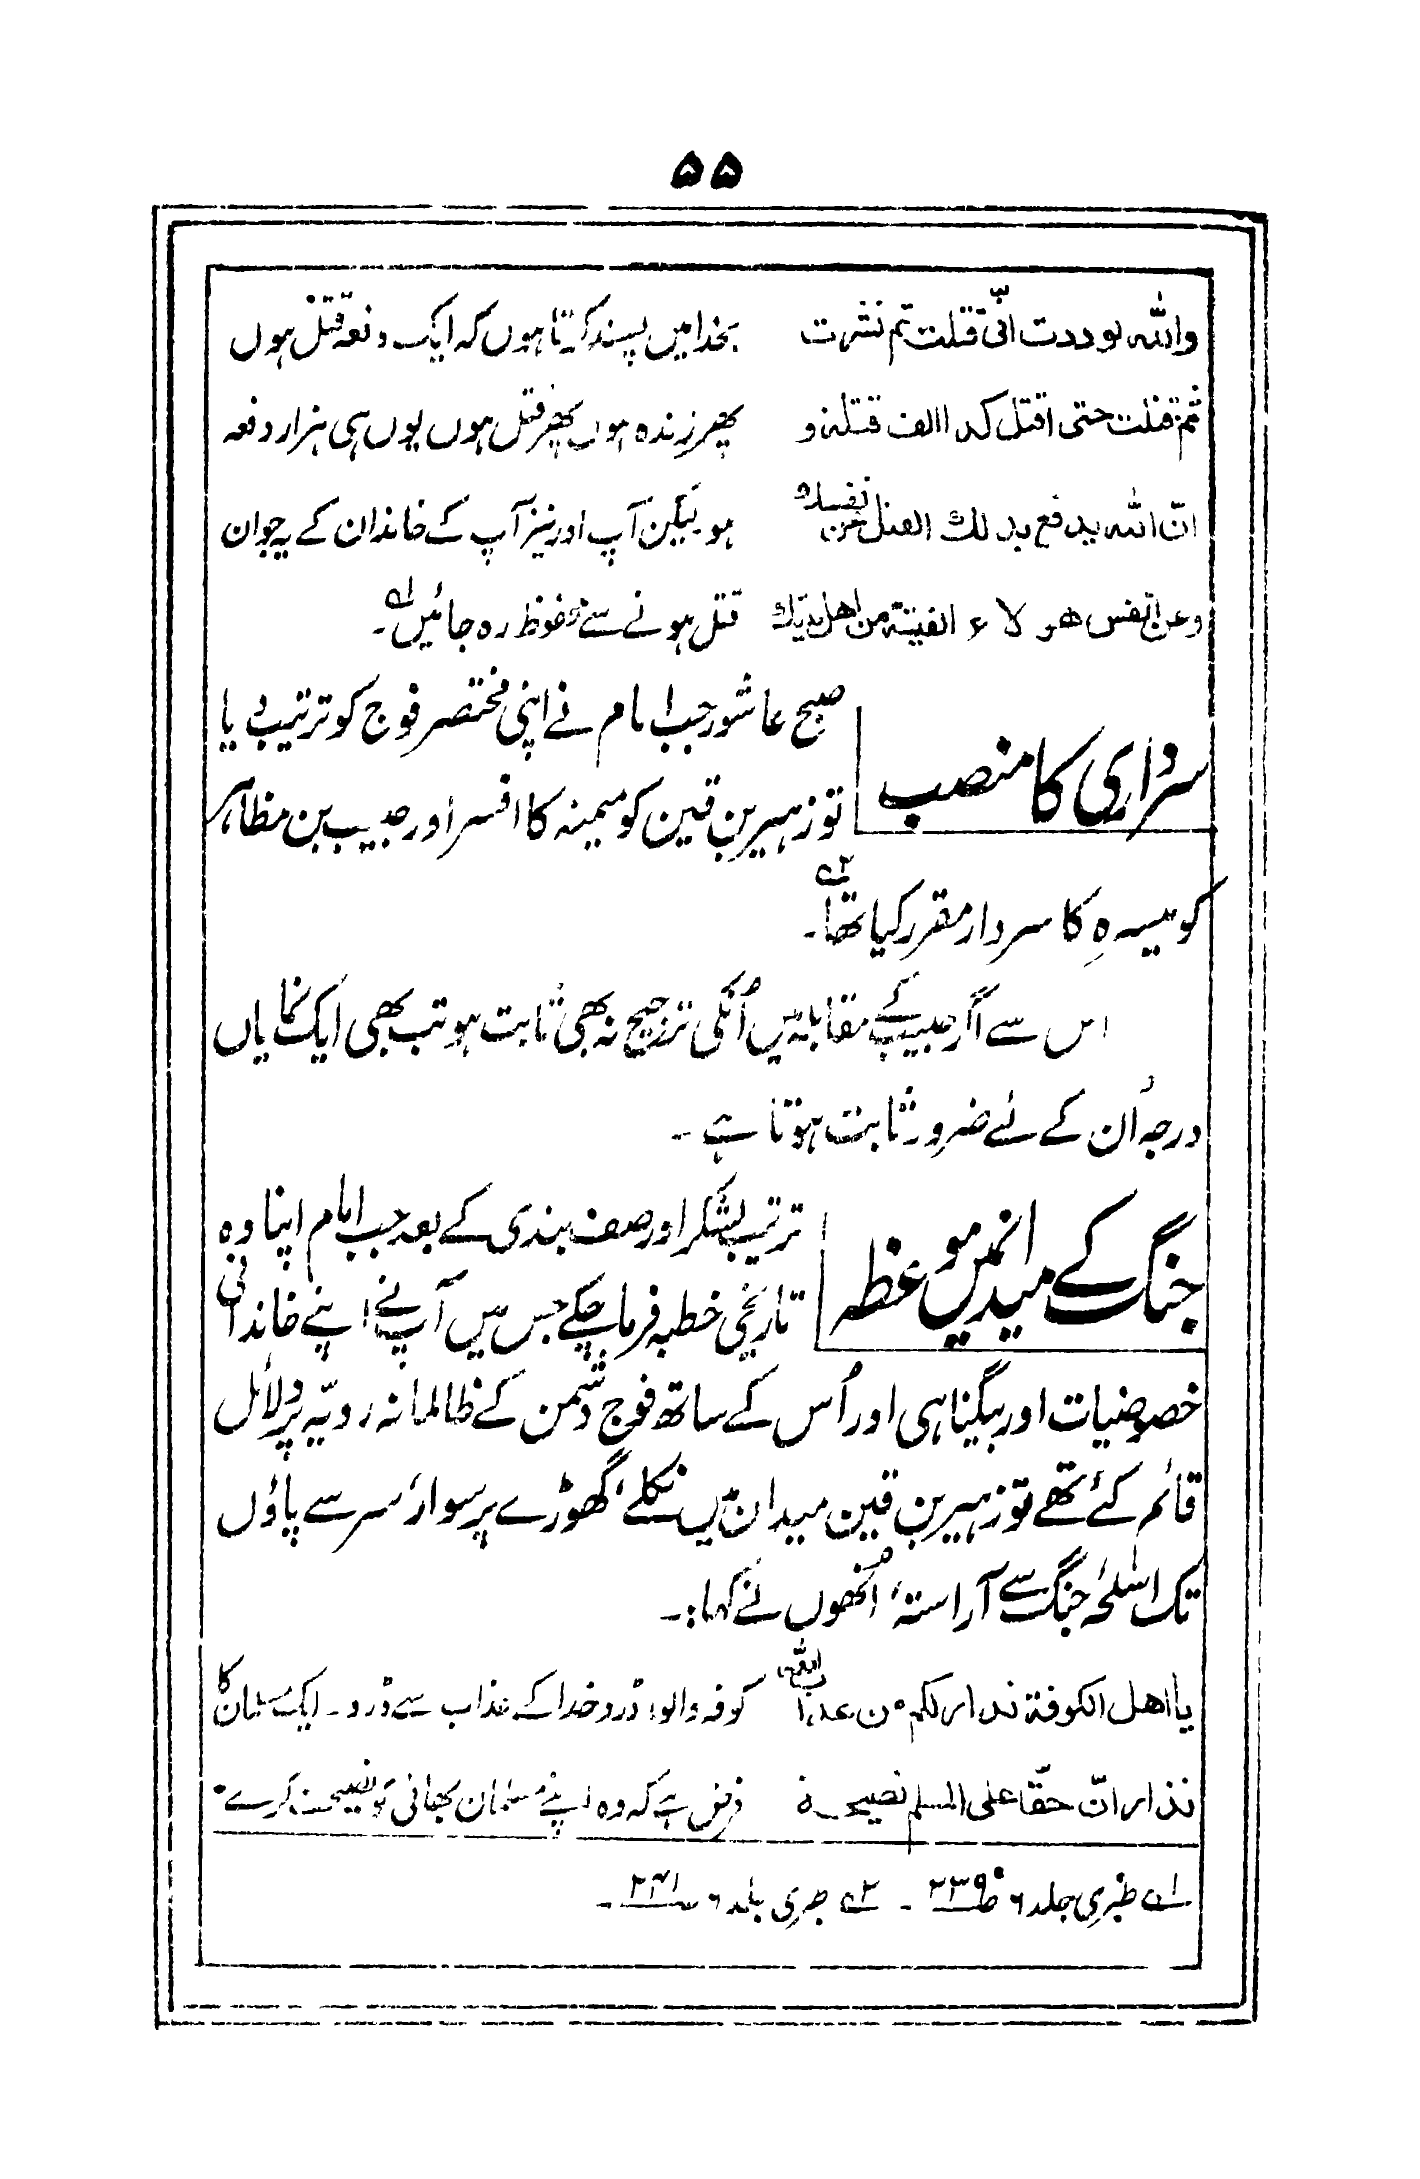 ۵۵
والله لوددت انّی قتلت ثم نشرت بخدا میں پسند کرتا ہوں کہ ایک دفعہ قتل ہوں
ثم قتلت حتی اقتل کذا الف قتلة و پھر زندہ ہوں پھر قتل ہوں یوں ہی ہزار دفعہ
انّ الله یدفع بذلك القتل عن نفسك و ہو لیکن آپ اور نیز آپ کے خاندان کے یہ جوان
وعن انفس هولاء الفتیة من اهل بیتك قتل ہونے سے محفوظ رہ جائیں۔ لہ۱
سرداری کا منصب
صبح عاشور جب امام نے اپنی مختصر فوج کو ترتیب دیا
تو زہیر بن قین کو میمنہ کا افسر اور حبیب بن مظاہر
کو میسرہ کا سردار مقرر کیا تھا۔ ۲ہ
اس سے اگر حبیب کے مقابلہ میں اُنکی ترجیح نہ بھی ثابت ہو تب بھی ایک نمایاں
درجہ اُن کے لئے ضرور ثابت ہوتا ہے۔
جنگ کے میدان میں موعظہ
ترتیب لشکر اور صف بندی کے بعد جب امام اپنا وہ
تاریخی خطبہ فرما چکے جس میں آپ نے اپنے خاندانی
خصوصیات اور بیگناہی اور اُس کے ساتھ فوج دشمن کے ظالمانہ رویّہ پر دلائل
قائم کئے تھے تو زہیر بن قین میدان میں نکلے، گھوڑے پر سوار، سر سے پاؤں
تک اسلحۂ جنگ سے آراستہ، اُنھوں نے کہا:۔
یا اهل الکوفة نذار لکم من عذاب الله کوفہ والو! ڈرو خدا کے عذاب سے ڈرو۔ ایک مسلمان کا
نذار انّ حقّا علی المسلم نصیحة فرض ہے کہ وہ اپنے مسلمان بھائی کو نصیحت کرے۔
۱ہ طبری جلد ۶ ص۲۳۹۔ ۲ہ طبری جلد ۶ ص۲۴۱۔